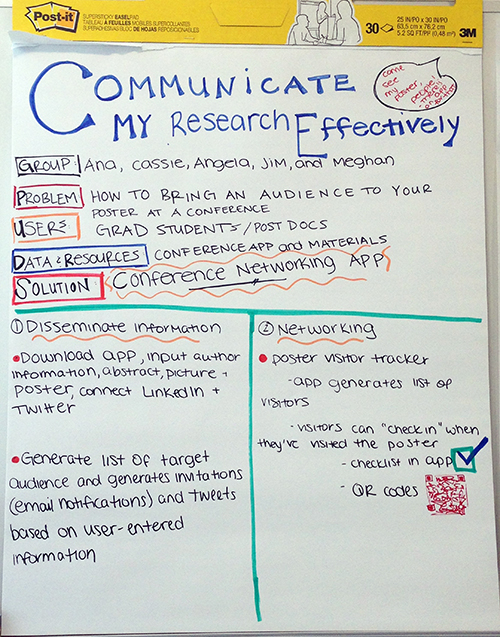 Post-it
SUPERSTICKY EASEL PAD
TABLEAU À FEUILLES MOBILES SUPERCOLLANTES
SUPERADHESIVAS BLOC DE HOJAS REPOSICIONABLES
30
25 IN/PO x 30 IN/PO
63,5 cm x 76,2 cm
5.2 SQ FT/PP (0,48 m²)
3M
COMMUNICATE
MY Research Effectively
come
see
my
poster,
people!
there's
an app
for that
GROUP: Ana, Cassie, Angela, Jim, and Meghan
PROBLEM HOW TO BRING AN AUDIENCE TO YOUR
POSTER AT A CONFERENCE
USERS GRAD STUDENTS/POST DOCS
DATA & RESOURCES CONFERENCE APP and MATERIALS
SOLUTION Conference Networking App
① Disseminate information
• Download app, input author
information, abstract, picture +
poster, connect LinkedIn +
Twitter
• Generate list of target
audience and generates invitations
(email notifications) and tweets
based on user-entered
information
② Networking
• poster visitor tracker
- app generates list of
visitors
- visitors can "check in" when
they've visited the poster
- checklist in app
- QR codes